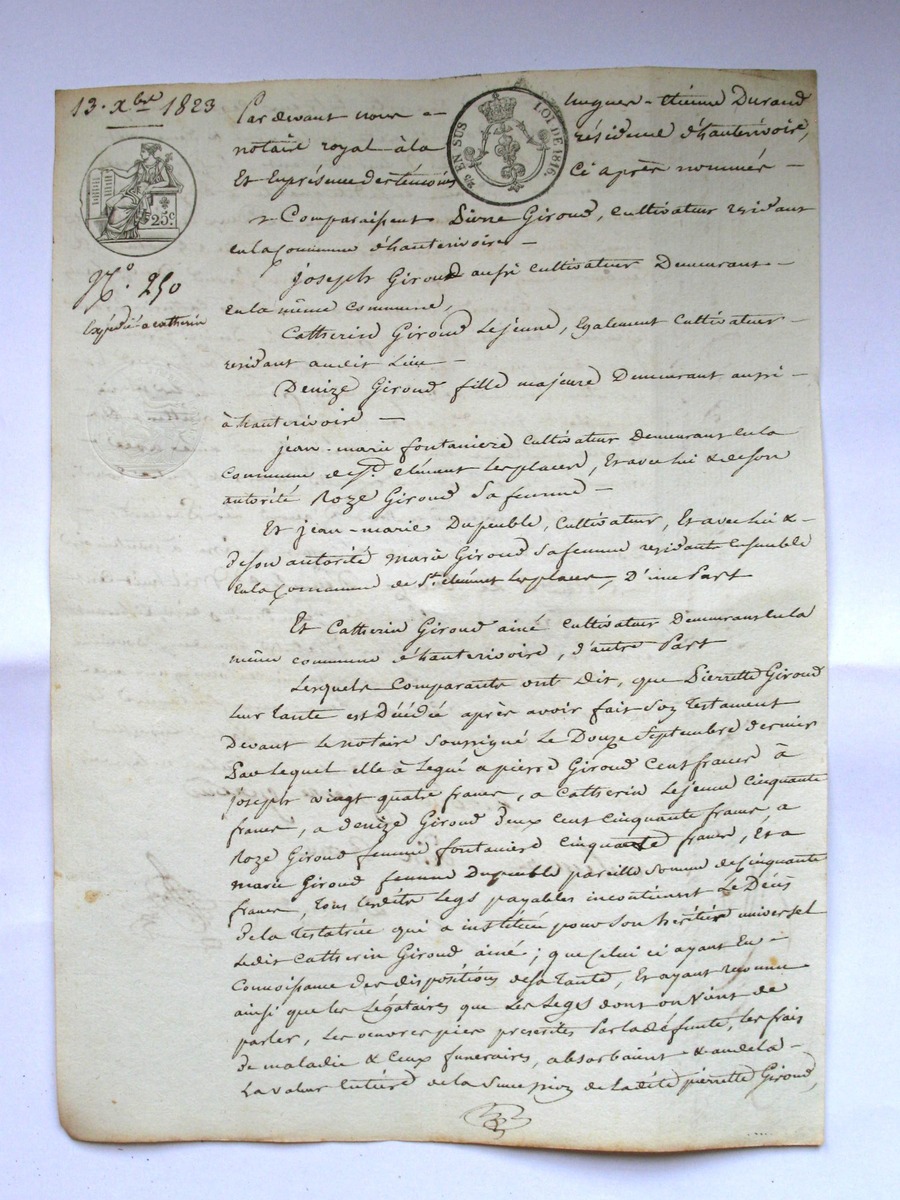 13. Xbre 1823
25c.
N° 250
Expédié a catherin
25 EN SUS LOI DE 1816.
Par devant nous = hugues = étienne Durand
notaire royal à la résidence d'hauterivoire,
Et En présence des témoins Ci après nommés —
Comparaissent Pierre Giroud, Cultivateur residant
en la Commune d'hauterivoire —
Joseph Giroud aussi Cultivateur Demeurant —
en la même commune,
Catherin Giroud Le jeune, Egalement Cultivateur
residant audit Lieu —
Denize Giroud fille majeure Demeurant aussi —
à hauterivoire —
jean-marie fontaniere Cultivateur Demeurant En la
Commune de St. clément les places, Et avec lui & de son
autorité Roze Giroud Sa femme —
Et jean-marie Dupeuble, Cultivateur, Et avec lui &
de son autorité marie Giroud Sa femme residants Ensemble
en la Commune de St. clément les places, D'une Part
Et Catherin Giroud ainé Cultivateur Demeurant En la
même commune d'hauterivoire, d'autre Part
Lesquels Comparants ont Dit, que Pierrette Giroud
leur tante est Décédée après avoir fait Son Testament
Devant Le notaire Soussigné Le Douze Septembre dernier
Par Lequel elle à Legué a pierre Giroud Cent francs à
joseph vingt quatre francs, a Catherin Le jeune Cinquante
francs, a denize Giroud deux cent cinquante francs, a
Roze Giroud femme fontaniere Cinquante francs, Et a
marie Giroud femme Dupeuble pareille Somme de Cinquante
francs, Tous lesdits Legs payables incontinent Le Décès
de la Testatrice qui a institué pour Son héritier universel
Ledit Catherin Giroud ainé; que Celui ci ayant Eu —
Connoissance des dispositions de Sa Tante, Et ayant reconnu
ainsi que les Légataires que Les Legs dont on Vient de
parler, Les oeuvres pies prescrites Par la défunte, les frais
de maladie & Ceux funeraires, absorbaient & audela —
La valeur Entière de la Succession de Ladite pierrette Giroud,